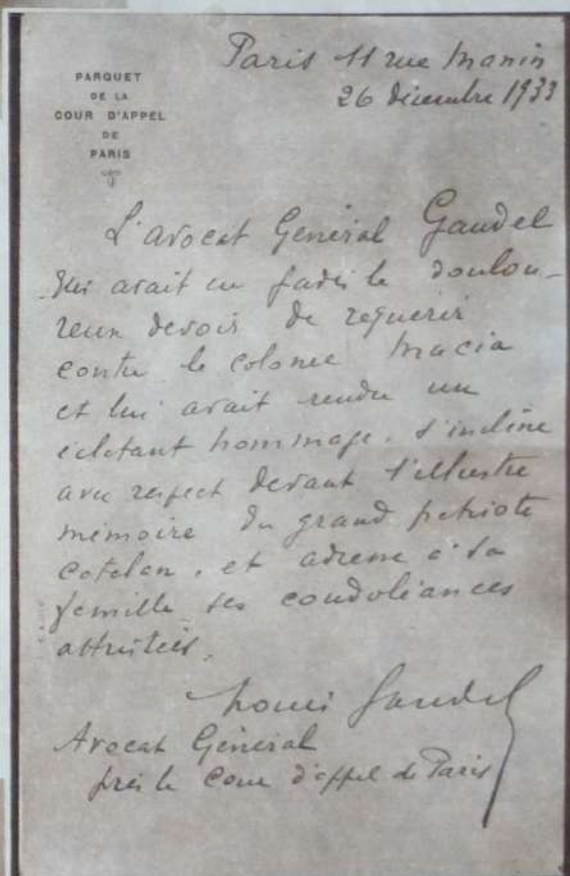 Paris 11 rue Manin
26 décembre 1933
PARQUET
DE LA
COUR D'APPEL
DE
PARIS
L'avocat Général Gaudel
qui avait eu jadis le doulou-
reux devoir de requérir
contre le colonel Macia
et lui avait rendu un
éclatant hommage, s'incline
avec respect devant l'illustre
mémoire du grand patriote
catalan, et adresse à sa
famille ses condoléances
attristées.
Gaudel
Avocat Général
près la Cour d'appel de Paris